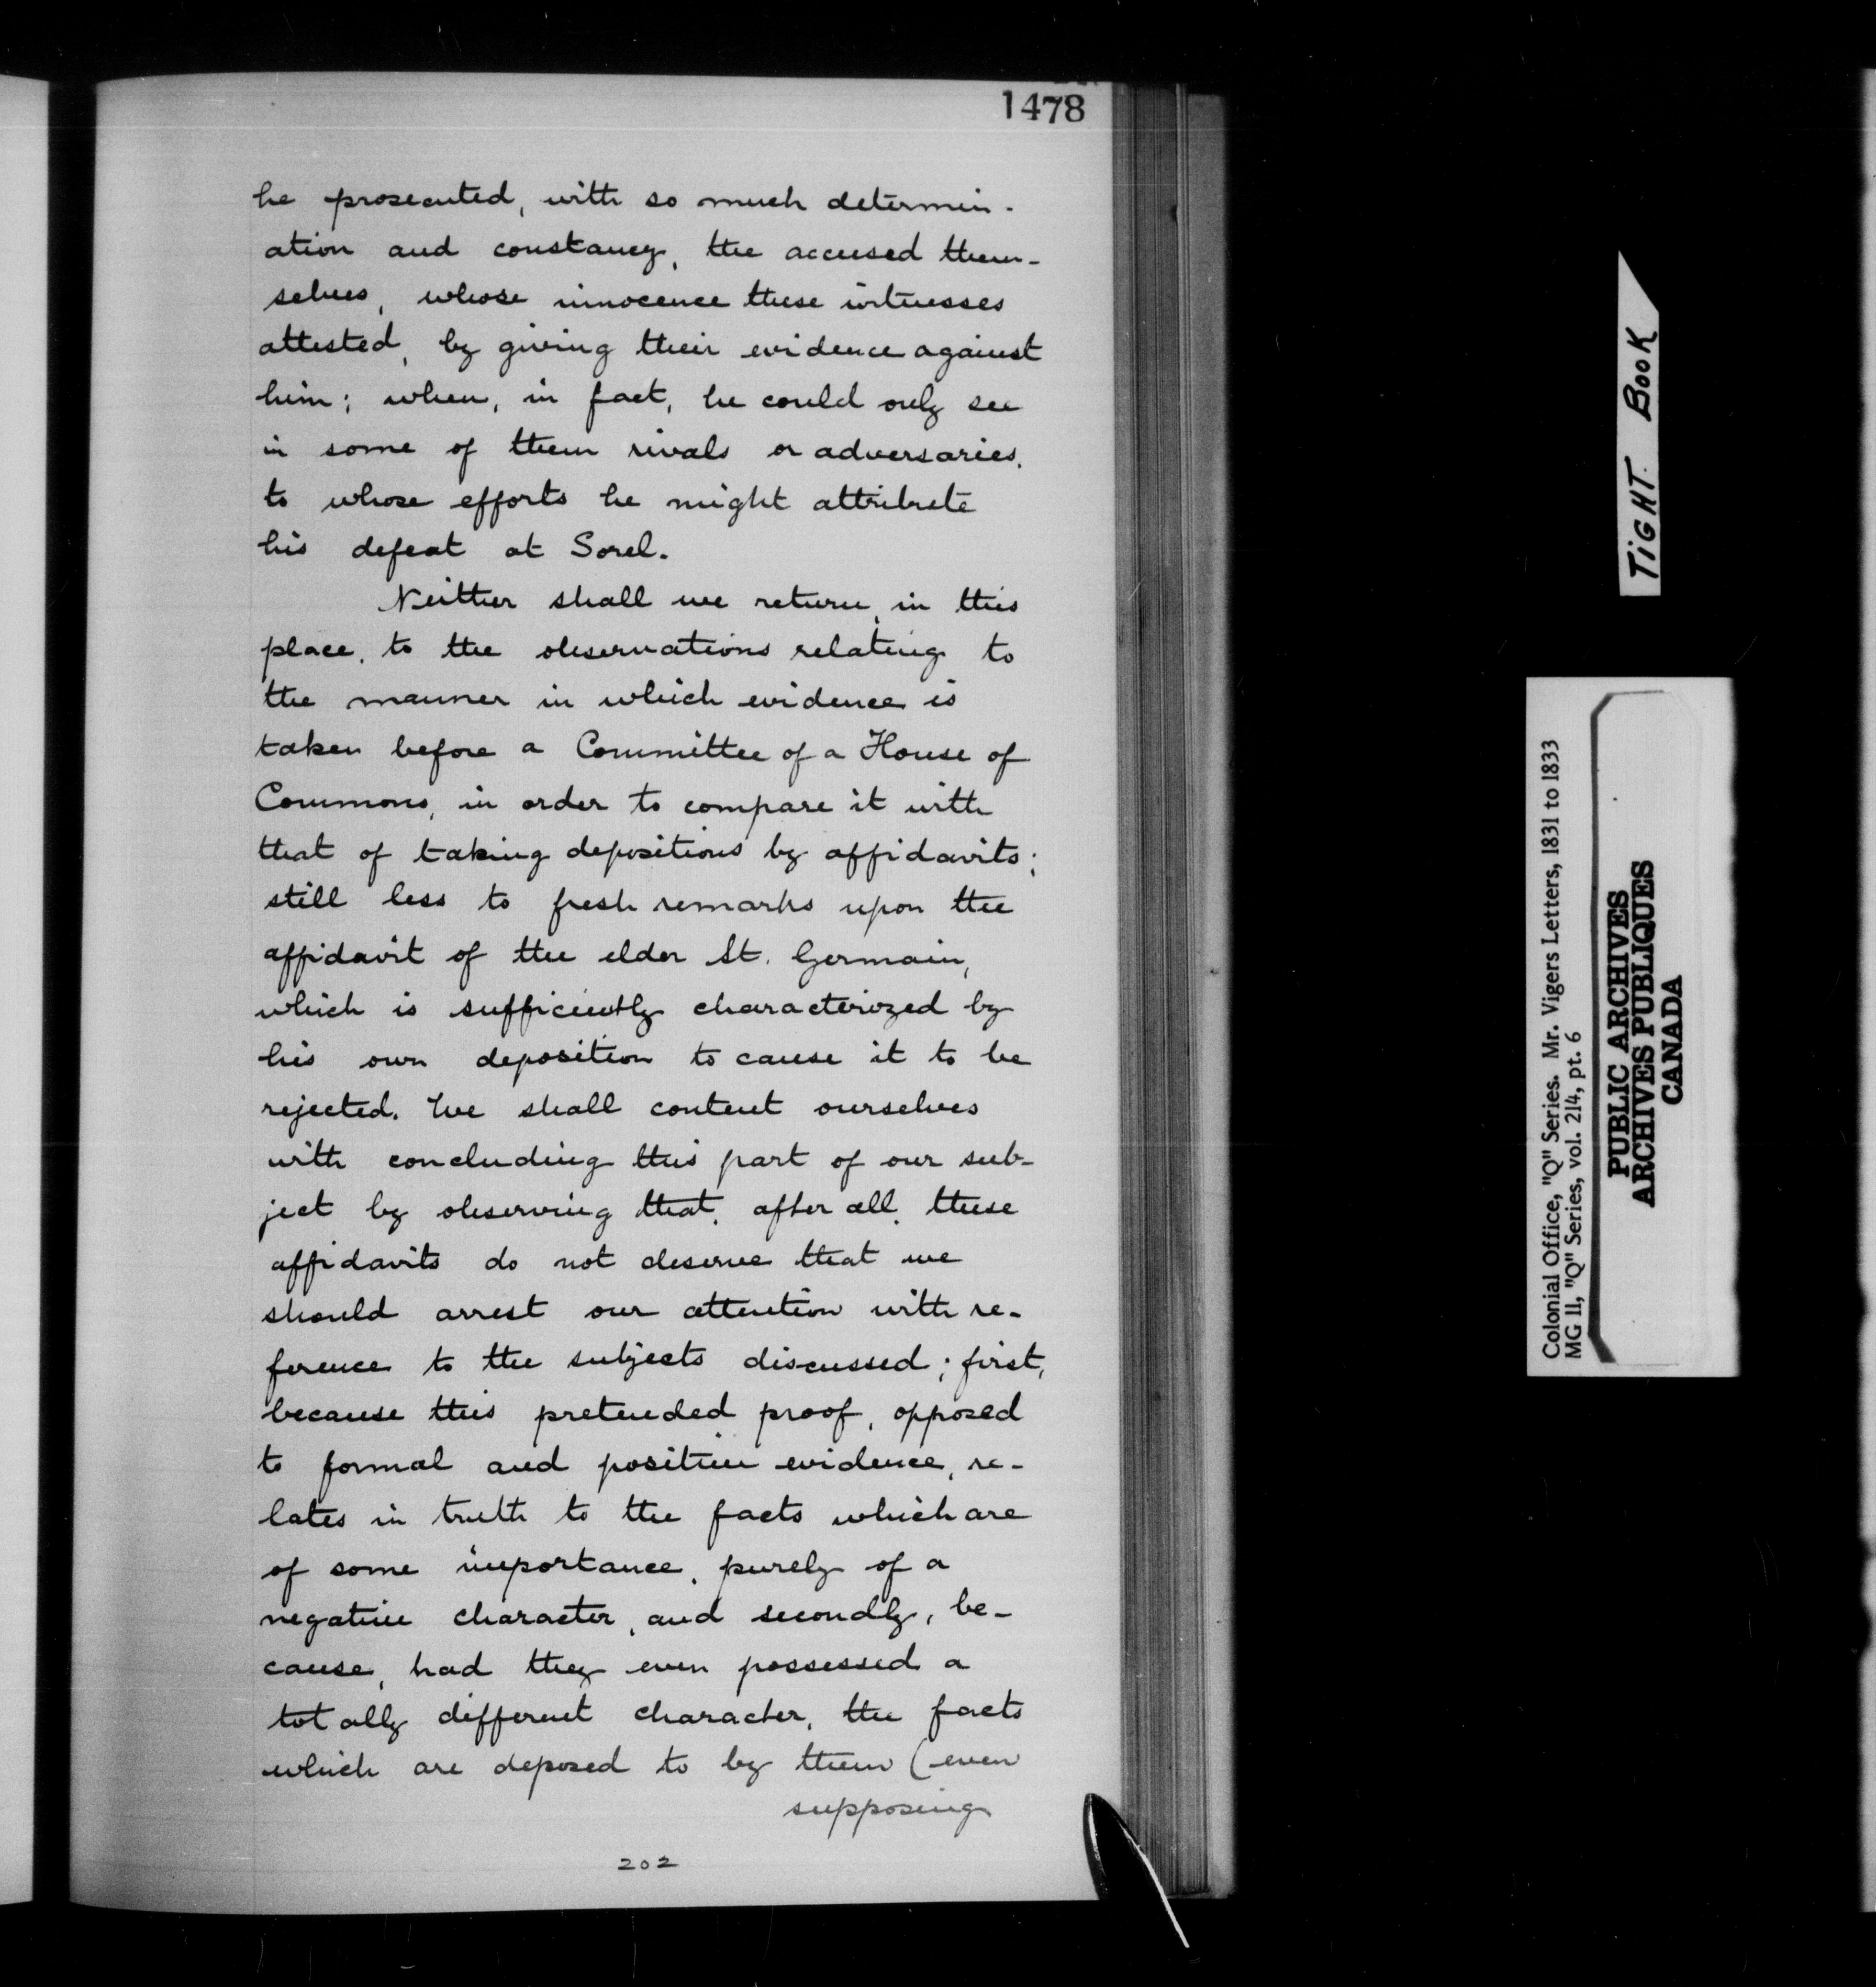 1478
he prosecuted, with so much determin-
ation and constancy, the accused them-
selves, whose innocence these witnesses
attested, by giving their evidence against
him; when, in fact, he could only see
in some of them rivals or adversaries,
to whose efforts he might attribute
his defeat at Sorel.
Neither shall we return, in this
place, to the observations relating to
the manner in which evidence is
taken before a Committee of a House of
Commons, in order to compare it with
that of taking depositions by affidavits;
still less to fresh remarks upon the
affidavit of the elder St. Germain,
which is sufficiently characterized by
his own deposition to cause it to be
rejected. We shall content ourselves
with concluding this part of our sub-
ject by observing that, after all, these
affidavits do not deserve that we
should arrest our attention with re-
ference to the subjects discussed; first,
because this pretended proof, opposed
to formal and positive evidence, re-
lates in truth to the facts which are
of some importance, purely of a
negative character, and secondly, be-
cause, had they even possessed a
totally different character, the facts
which are deposed to by them (even
supposing
202
TIGHT BOOK
Colonial Office, "Q" Series. Mr. Vigers Letters, 1831 to 1833
MG 11, "Q" Series, vol. 214, pt. 6
PUBLIC ARCHIVES
ARCHIVES PUBLIQUES
CANADA